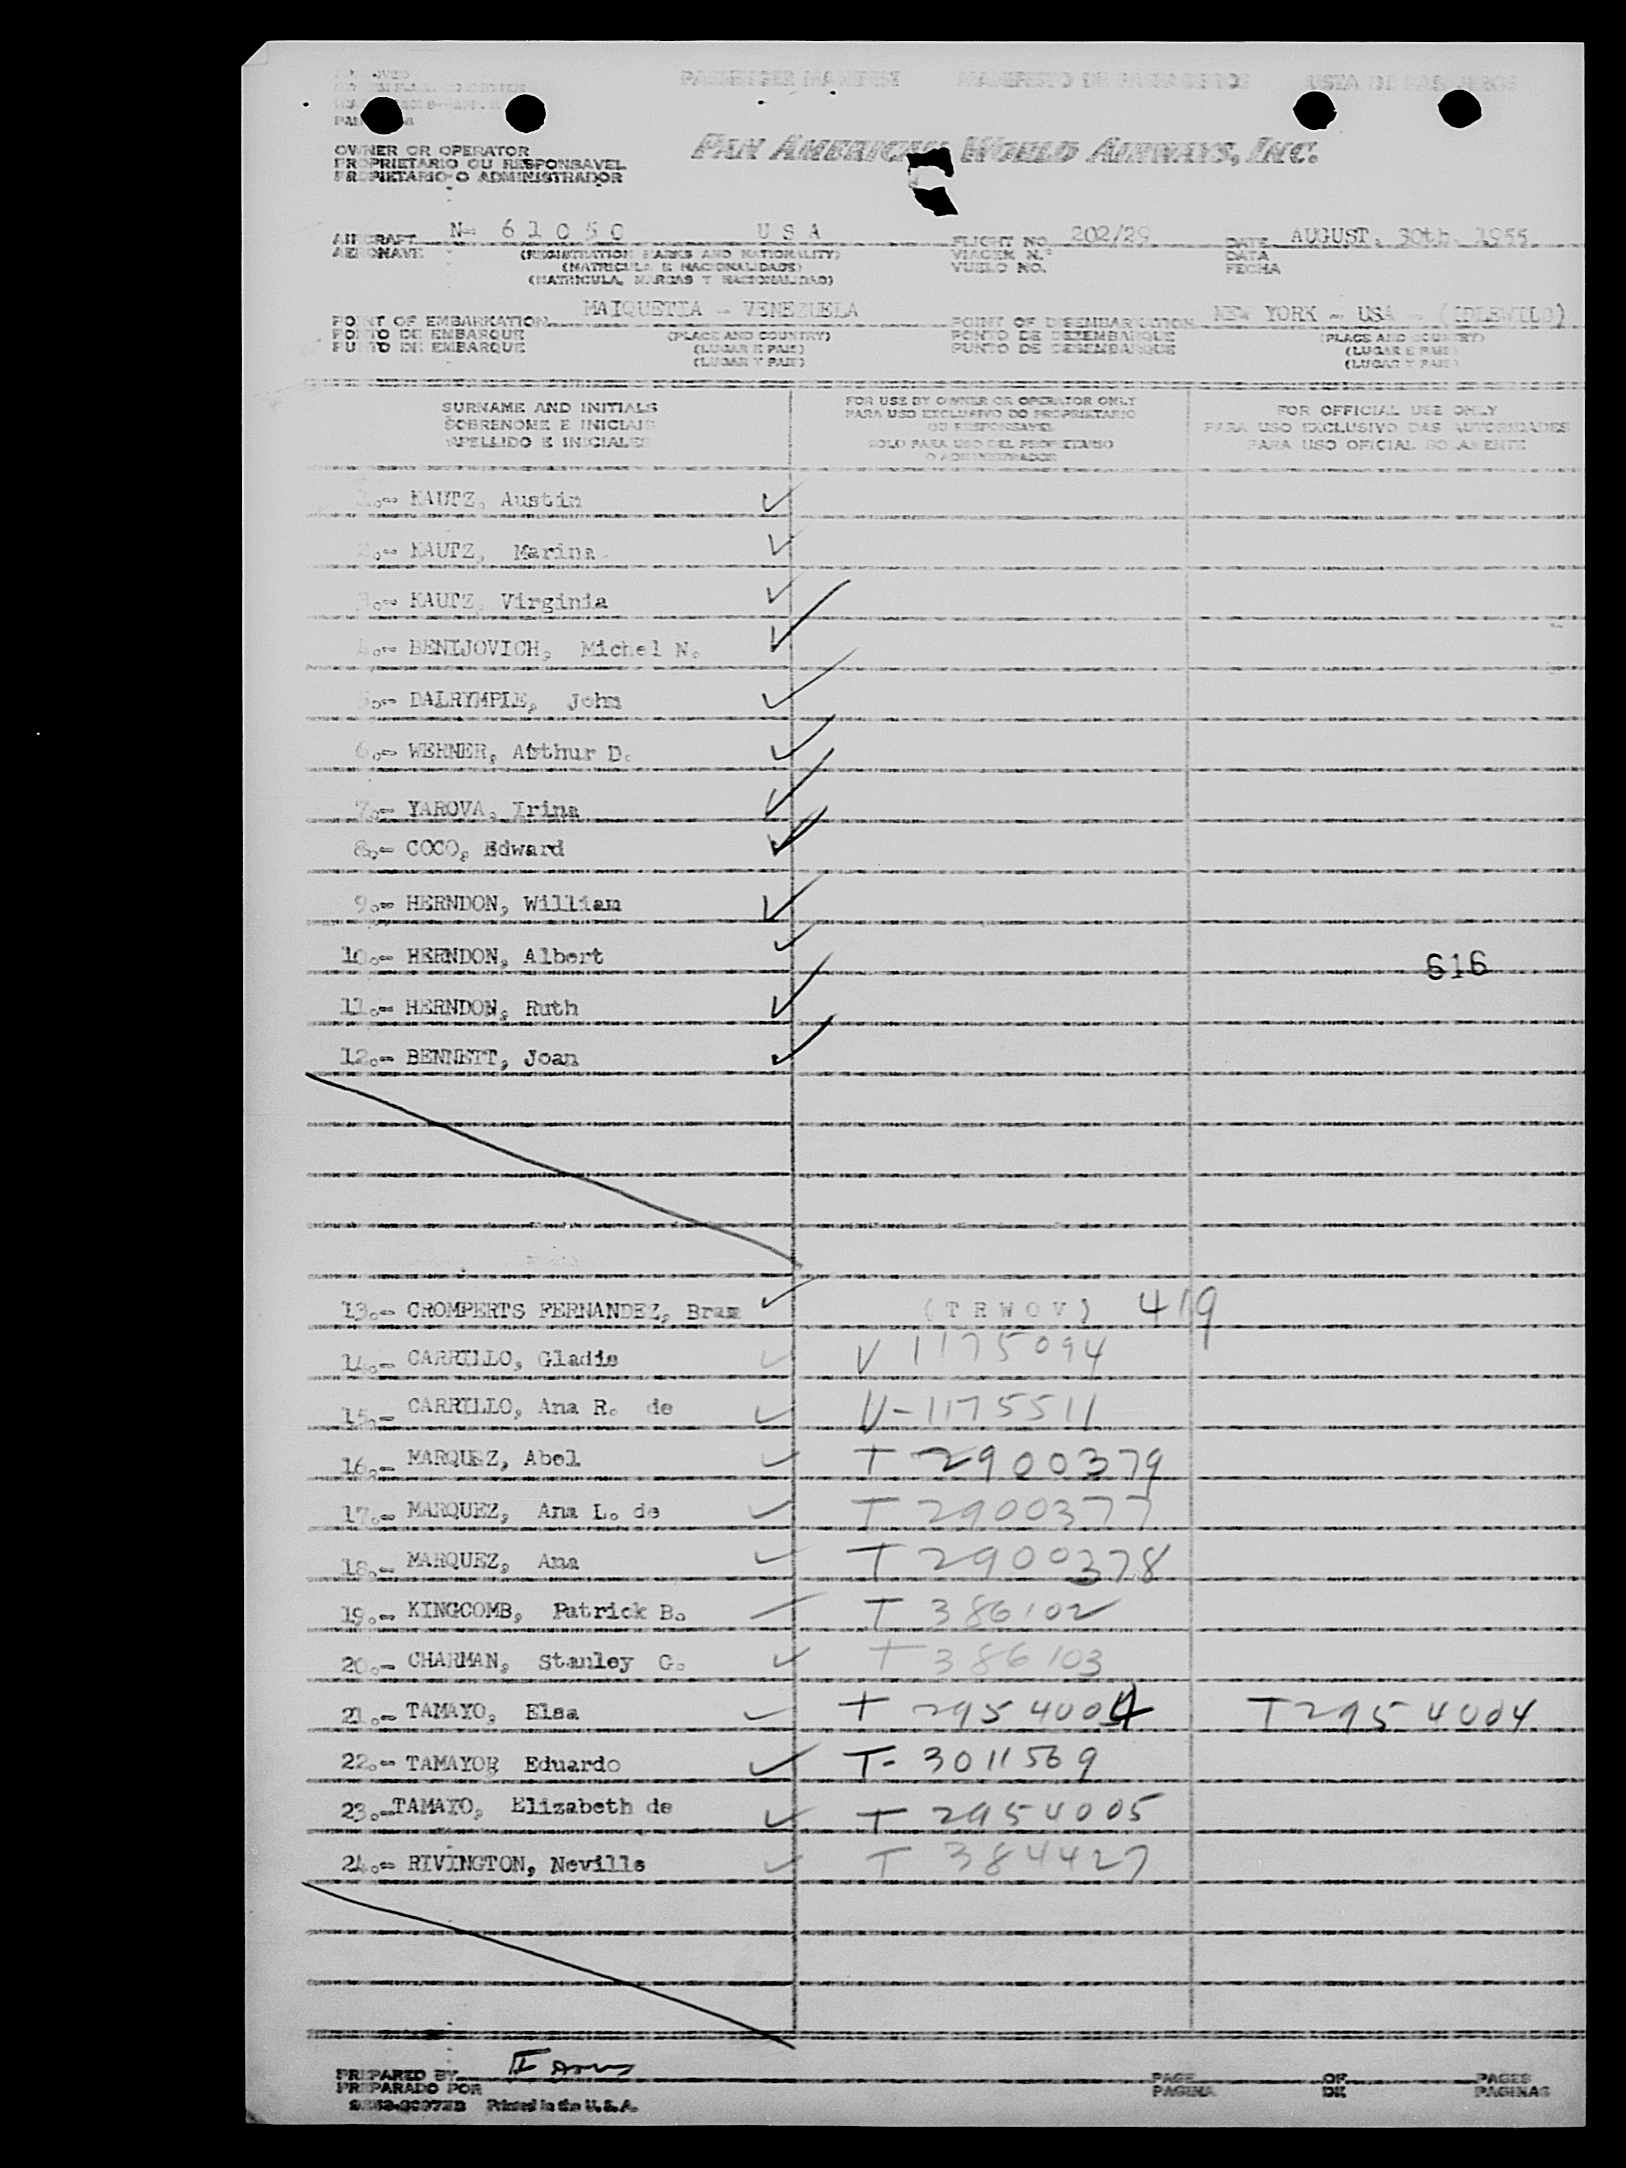 PASSENGER MANIFEST MANIFESTO DE PASSAGEIROS LISTA DE PASAJEROS
OWNER OR OPERATOR
PROPRIETARIO OU RESPONSAVEL
PROPIETARIO O ADMINISTRADOR
PAN AMERICAN WORLD AIRWAYS, INC.
AIRCRAFT N- 61050 USA FLIGHT NO. 202/29 DATE AUGUST, 30th. 1955
AERONAVE (REGISTRATION MARKS AND NATIONALITY) VIAGEM N.º DATA
(MATRICULA E NACIONALIDADE) VUELO NO. FECHA
(MATRICULA, MARCAS Y NACIONALIDAD)
POINT OF EMBARKATION MAIQUETIA - VENEZUELA POINT OF DISEMBARKATION NEW YORK - USA - (IDLEWILD)
PONTO DE EMBARQUE (PLACE AND COUNTRY) PONTO DE DEZEMBARQUE (PLACE AND COUNTRY)
PUNTO DE EMBARQUE (LUGAR E PAIS) PUNTO DE DESEMBARQUE (LUGAR E PAIS)
(LUGAR Y PAIS) (LUGAR Y PAIS)
SURNAME AND INITIALS
SOBRENOME E INICIAIS
APELLIDO E INICIALES
FOR USE BY OWNER OR OPERATOR ONLY
PARA USO EXCLUSIVO DO PROPRIETARIO
OU RESPONSAVEL
SOLO PARA USO DEL PROPIETARIO
O ADMINISTRADOR
FOR OFFICIAL USE ONLY
PARA USO EXCLUSIVO DAS AUTORIDADES
PARA USO OFICIAL SOLAMENTE
1.- KAUTZ, Austin
2.- KAUTZ, Marina
3.- KAUTZ, Virginia
4.- BENIJOVICH, Michel N.
5.- DALRYMPLE, John
6.- WERNER, Arthur D.
7.- YAROVA, Irina
8.- COCO, Edward
9.- HERNDON, William
10.- HERNDON, Albert 616
11.- HERNDON, Ruth
12.- BENNETT, Joan
13.- CROMPERTS FERNANDEZ, Bram (TRWOV) 419
14.- CARRILLO, Gladis V 1175094
15.- CARRILLO, Ana R. de V-1175511
16.- MARQUEZ, Abel T 2900379
17.- MARQUEZ, Ana L. de T 2900377
18.- MARQUEZ, Ana T 2900378
19.- KINGCOMB, Patrick B. T 386102
20.- CHARMAN, Stanley G. T 386103
21.- TAMAYO, Elsa T 2954004 T 2954004
22.- TAMAYO, Eduardo T- 3011569
23.- TAMAYO, Elizabeth de T 2954005
24.- RIVINGTON, Neville T 384427
PREPARED BY PAGE OF PAGES
PREPARADO POR PAGINA DE PAGINAS
Printed in the U.S.A.